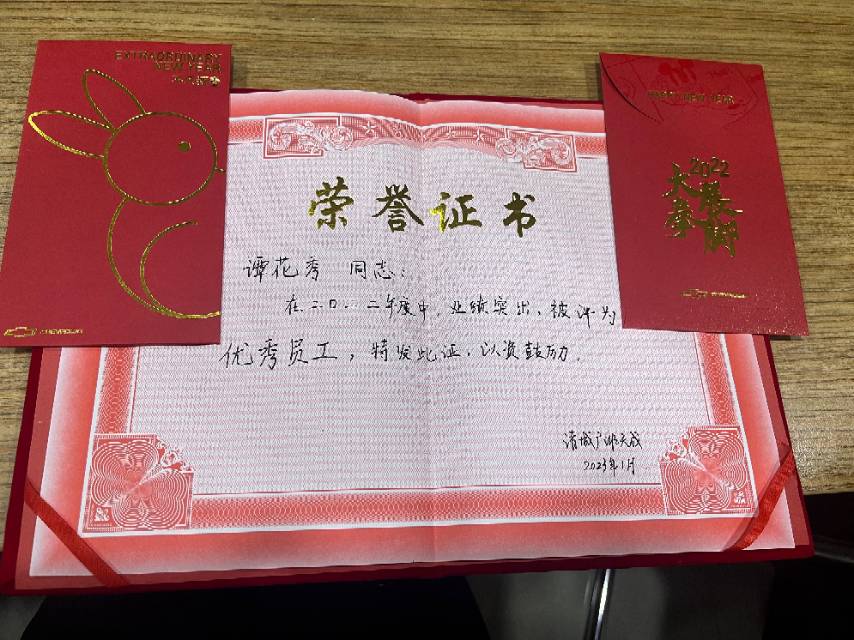 EXTRAORDINARY
NEW YEAR
CHEVROLET
荣誉证书
谭花秀 同志：
在二〇二二年度中，业绩突出，被评为
优秀员工，特发此证，以资鼓励。
2023年1月
HAPPY NEW YEAR
2022
大展
拳脚